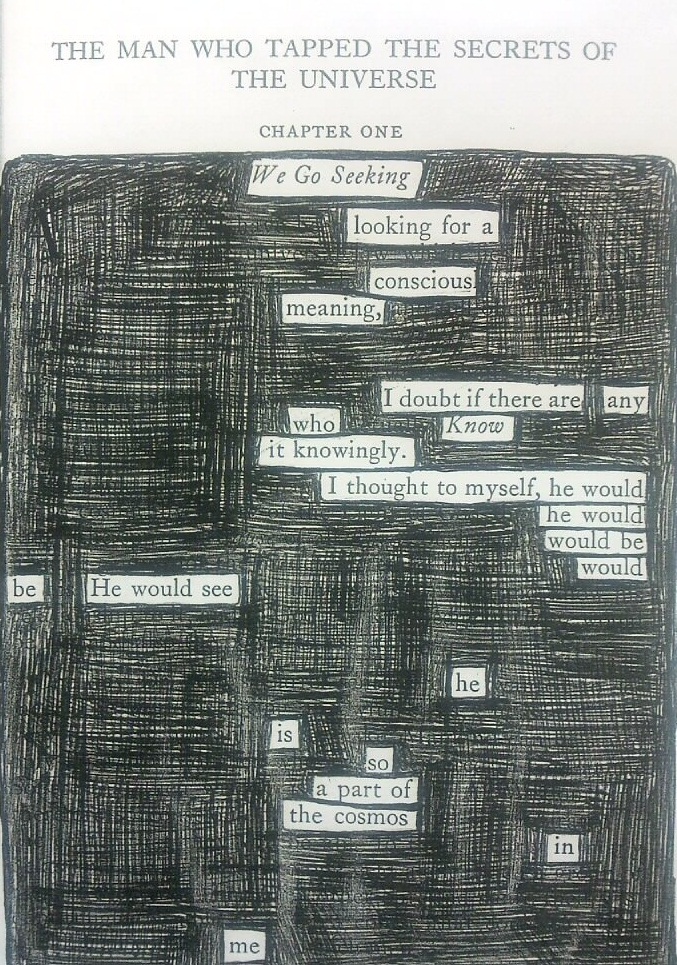 THE MAN WHO TAPPED THE SECRETS OF
THE UNIVERSE
CHAPTER ONE
We Go Seeking
looking for a
conscious
meaning,
I doubt if there are any
who Know
it knowingly.
I thought to myself, he would
he would
would be
would
be He would see
he
is
so
a part of
the cosmos
in
me